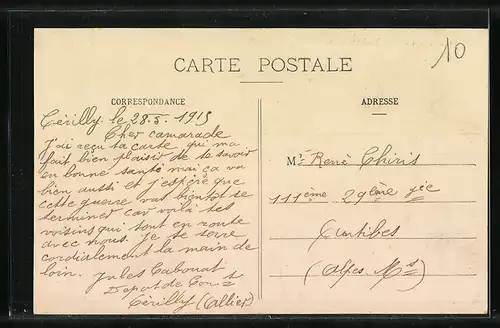 10
CARTE POSTALE
CORRESPONDANCE
ADRESSE
Cérilly le 28.5.1915
Cher camarade
J'ai reçu ta carte qui ma
fait bien plaisir de te savoir
en bonne santé moi ça va
bien aussi et j'espère que
cette guerre vas bientôt se
terminer car voilà tes
voisins qui sont en route
avec nous. Je te serre
cordialement la main de
loin. Jules Cabouat
Depot de
Cérilly (Allier)
Mr René Chiris
111ème 29ème Cie
Antibes
(Alpes Mmes)